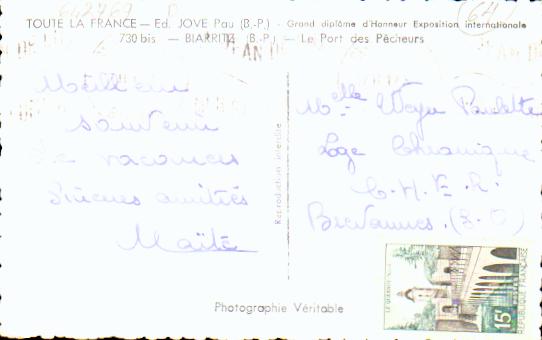 TOUTE LA FRANCE — Ed. JOVE Pau (B.-P.) - Grand diplôme d'Honneur Exposition internationale
730 bis — BIARRITZ (B.-P.) — Le Port des Pêcheurs
Meilleur
souvenir
de vacances
Sincères amitiés
Maïté
Reproduction interdite
Melle Paulette
Loge
Brévannes. (S.O)
LE QUESNOY
15F
REPUBLIQUE FRANÇAISE
Photographie Véritable